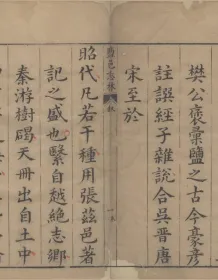 樊公褒彙鹽之古今豪彦
註譔經子雜說合吳晋唐
宋至於
鹽邑志林
昭代凡若干種用張茲邑著
記之盛也繄自越絶志鄉
秦游樹碣天冊出自土中